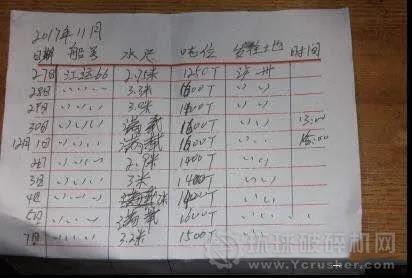 2017年11月
日期 船号 水尺 吨位 时间
27日 江运66 2.95米 1250T
28日 〃 3.3米 1600T 〃
29日 〃 3.3米 1600T 〃
30日 〃 满载 1600T 〃 13:00
12月1日 〃 满载 1600T 〃 15:00
2日 〃 1400T 〃
3日 〃 3米 1400T 〃
4日 〃 〃
5日 〃 满载 1600T 〃
7日 〃 3.2米 1500T 〃
环球破碎机网
Ycrusher.com